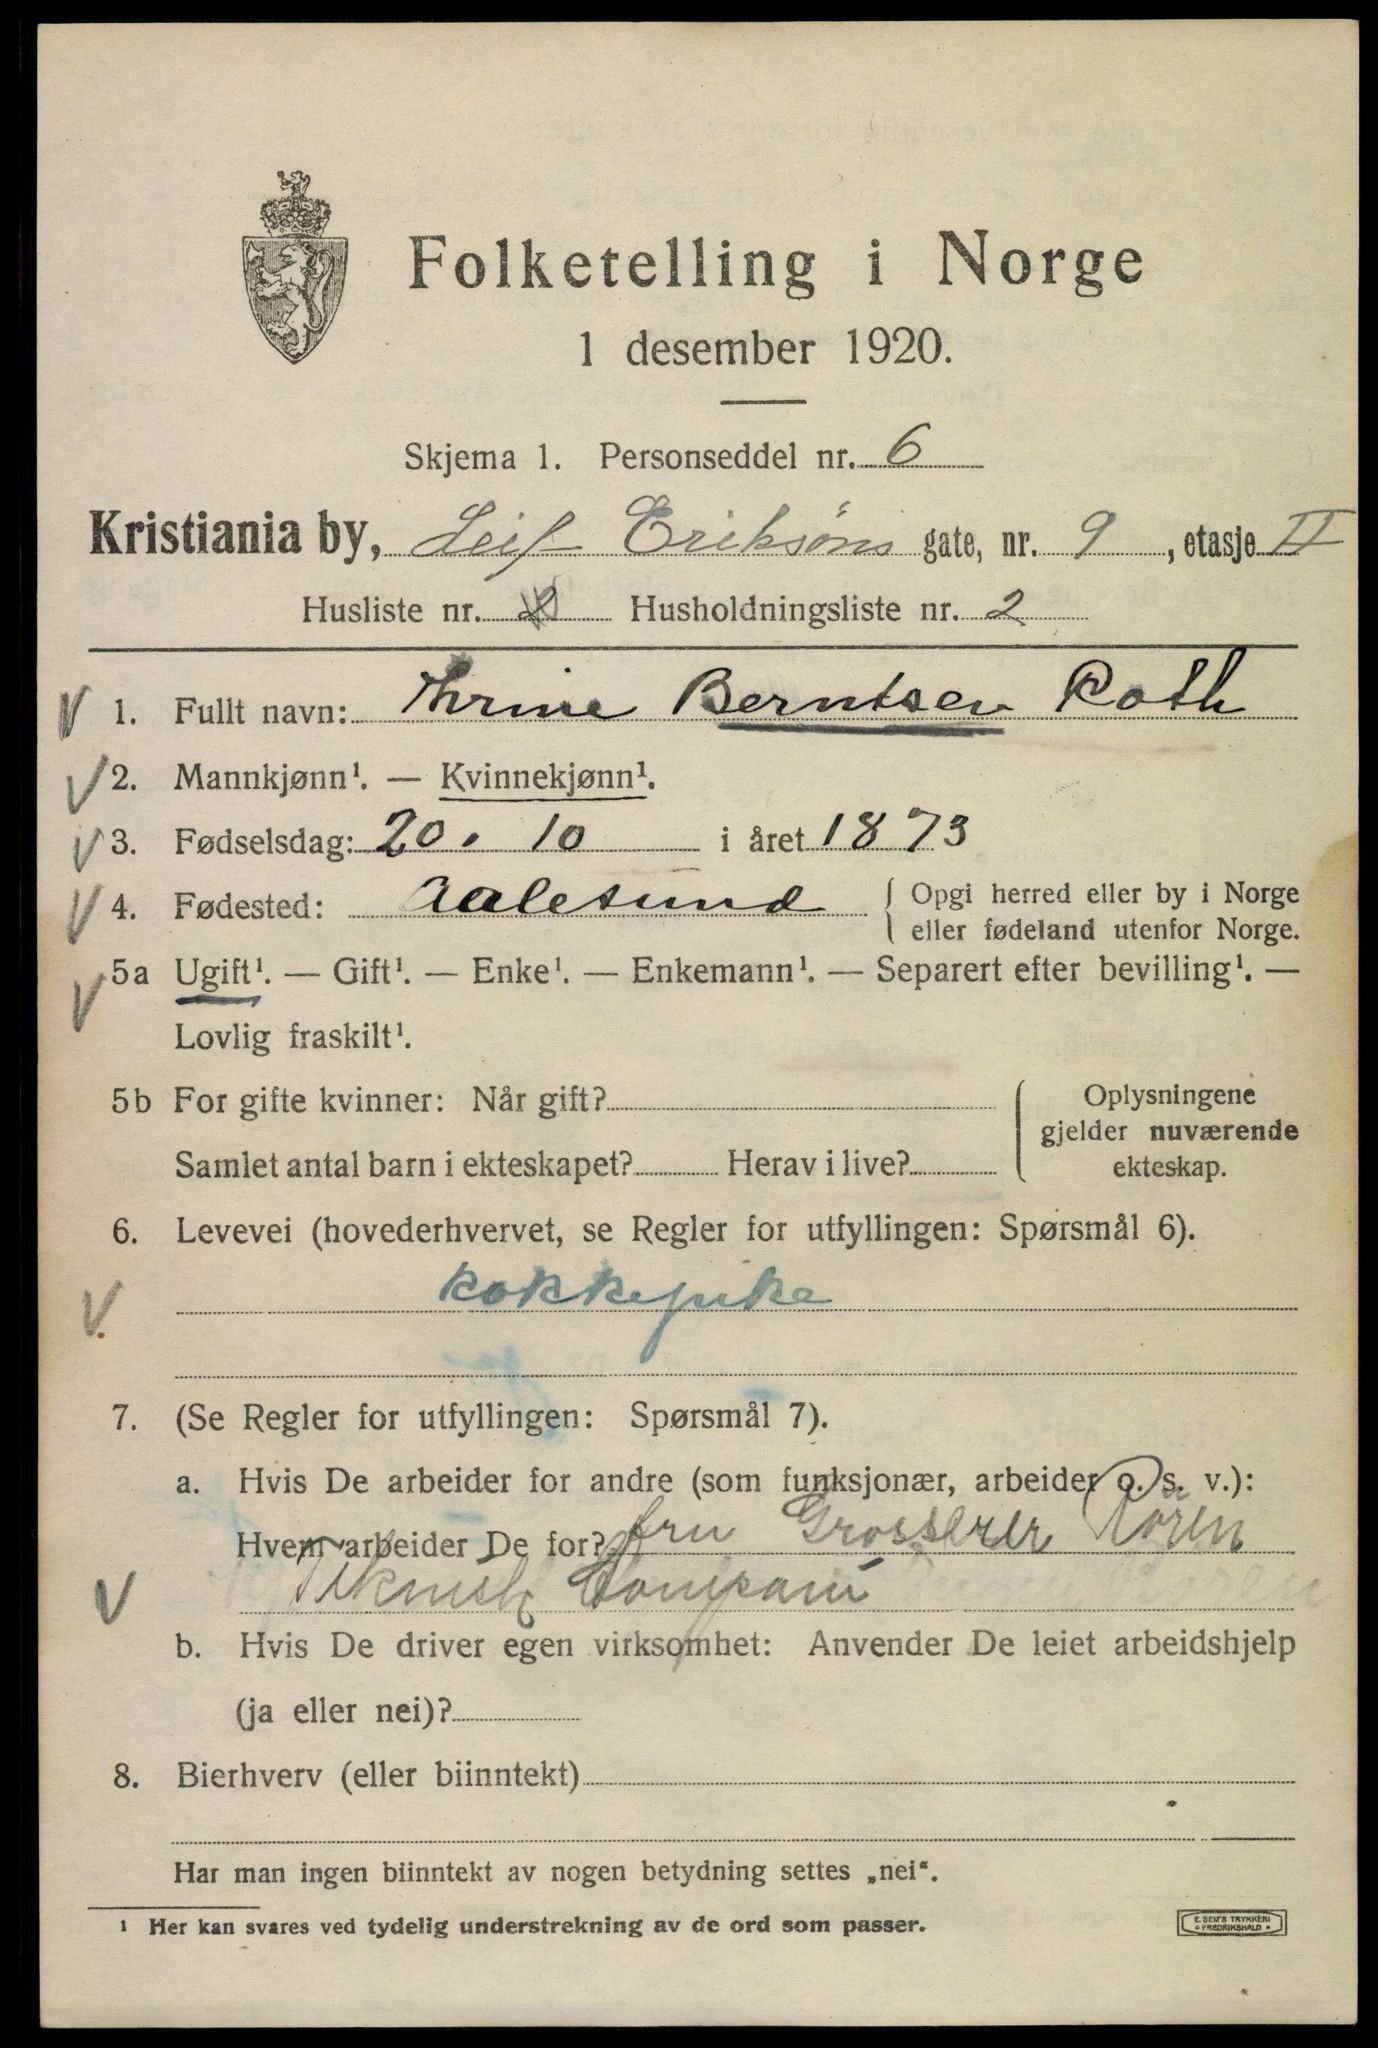 Folketelling i Norge
1 desember 1920.
Skjema 1. Personseddel nr. 6
Kristiania by, Leif Eriksøns gate, nr. 9, etasje II
Husliste nr. 2 Husholdningsliste nr. 2
1. Fullt navn: Thrine Berntsen Roth
2. Mannkjønn¹. — Kvinnekjønn¹.
3. Fødselsdag: 20. 10 i året 1873
4. Fødested: Aalesund { Opgi herred eller by i Norge
eller fødeland utenfor Norge.
5a Ugift¹. — Gift¹. — Enke¹. — Enkemann¹. — Separert efter bevilling¹. —
Lovlig fraskilt¹.
5b For gifte kvinner: Når gift? Oplysningene
gjelder nuværende
Samlet antal barn i ekteskapet? Herav i live? ekteskap.
6. Levevei (hovederhvervet, se Regler for utfyllingen: Spørsmål 6).
kokkepike
7. (Se Regler for utfyllingen: Spørsmål 7).
a. Hvis De arbeider for andre (som funksjonær, arbeider o. s. v.):
Hvem arbeider De for? fru Grosserer
Teknisk Compani
b. Hvis De driver egen virksomhet: Anvender De leiet arbeidshjelp
(ja eller nei)?
8. Bierhverv (eller biinntekt)
Har man ingen biinntekt av nogen betydning settes „nei“.
¹ Her kan svares ved tydelig understrekning av de ord som passer.
E. SEM'S TRYKKERI
FREDRIKSHALD